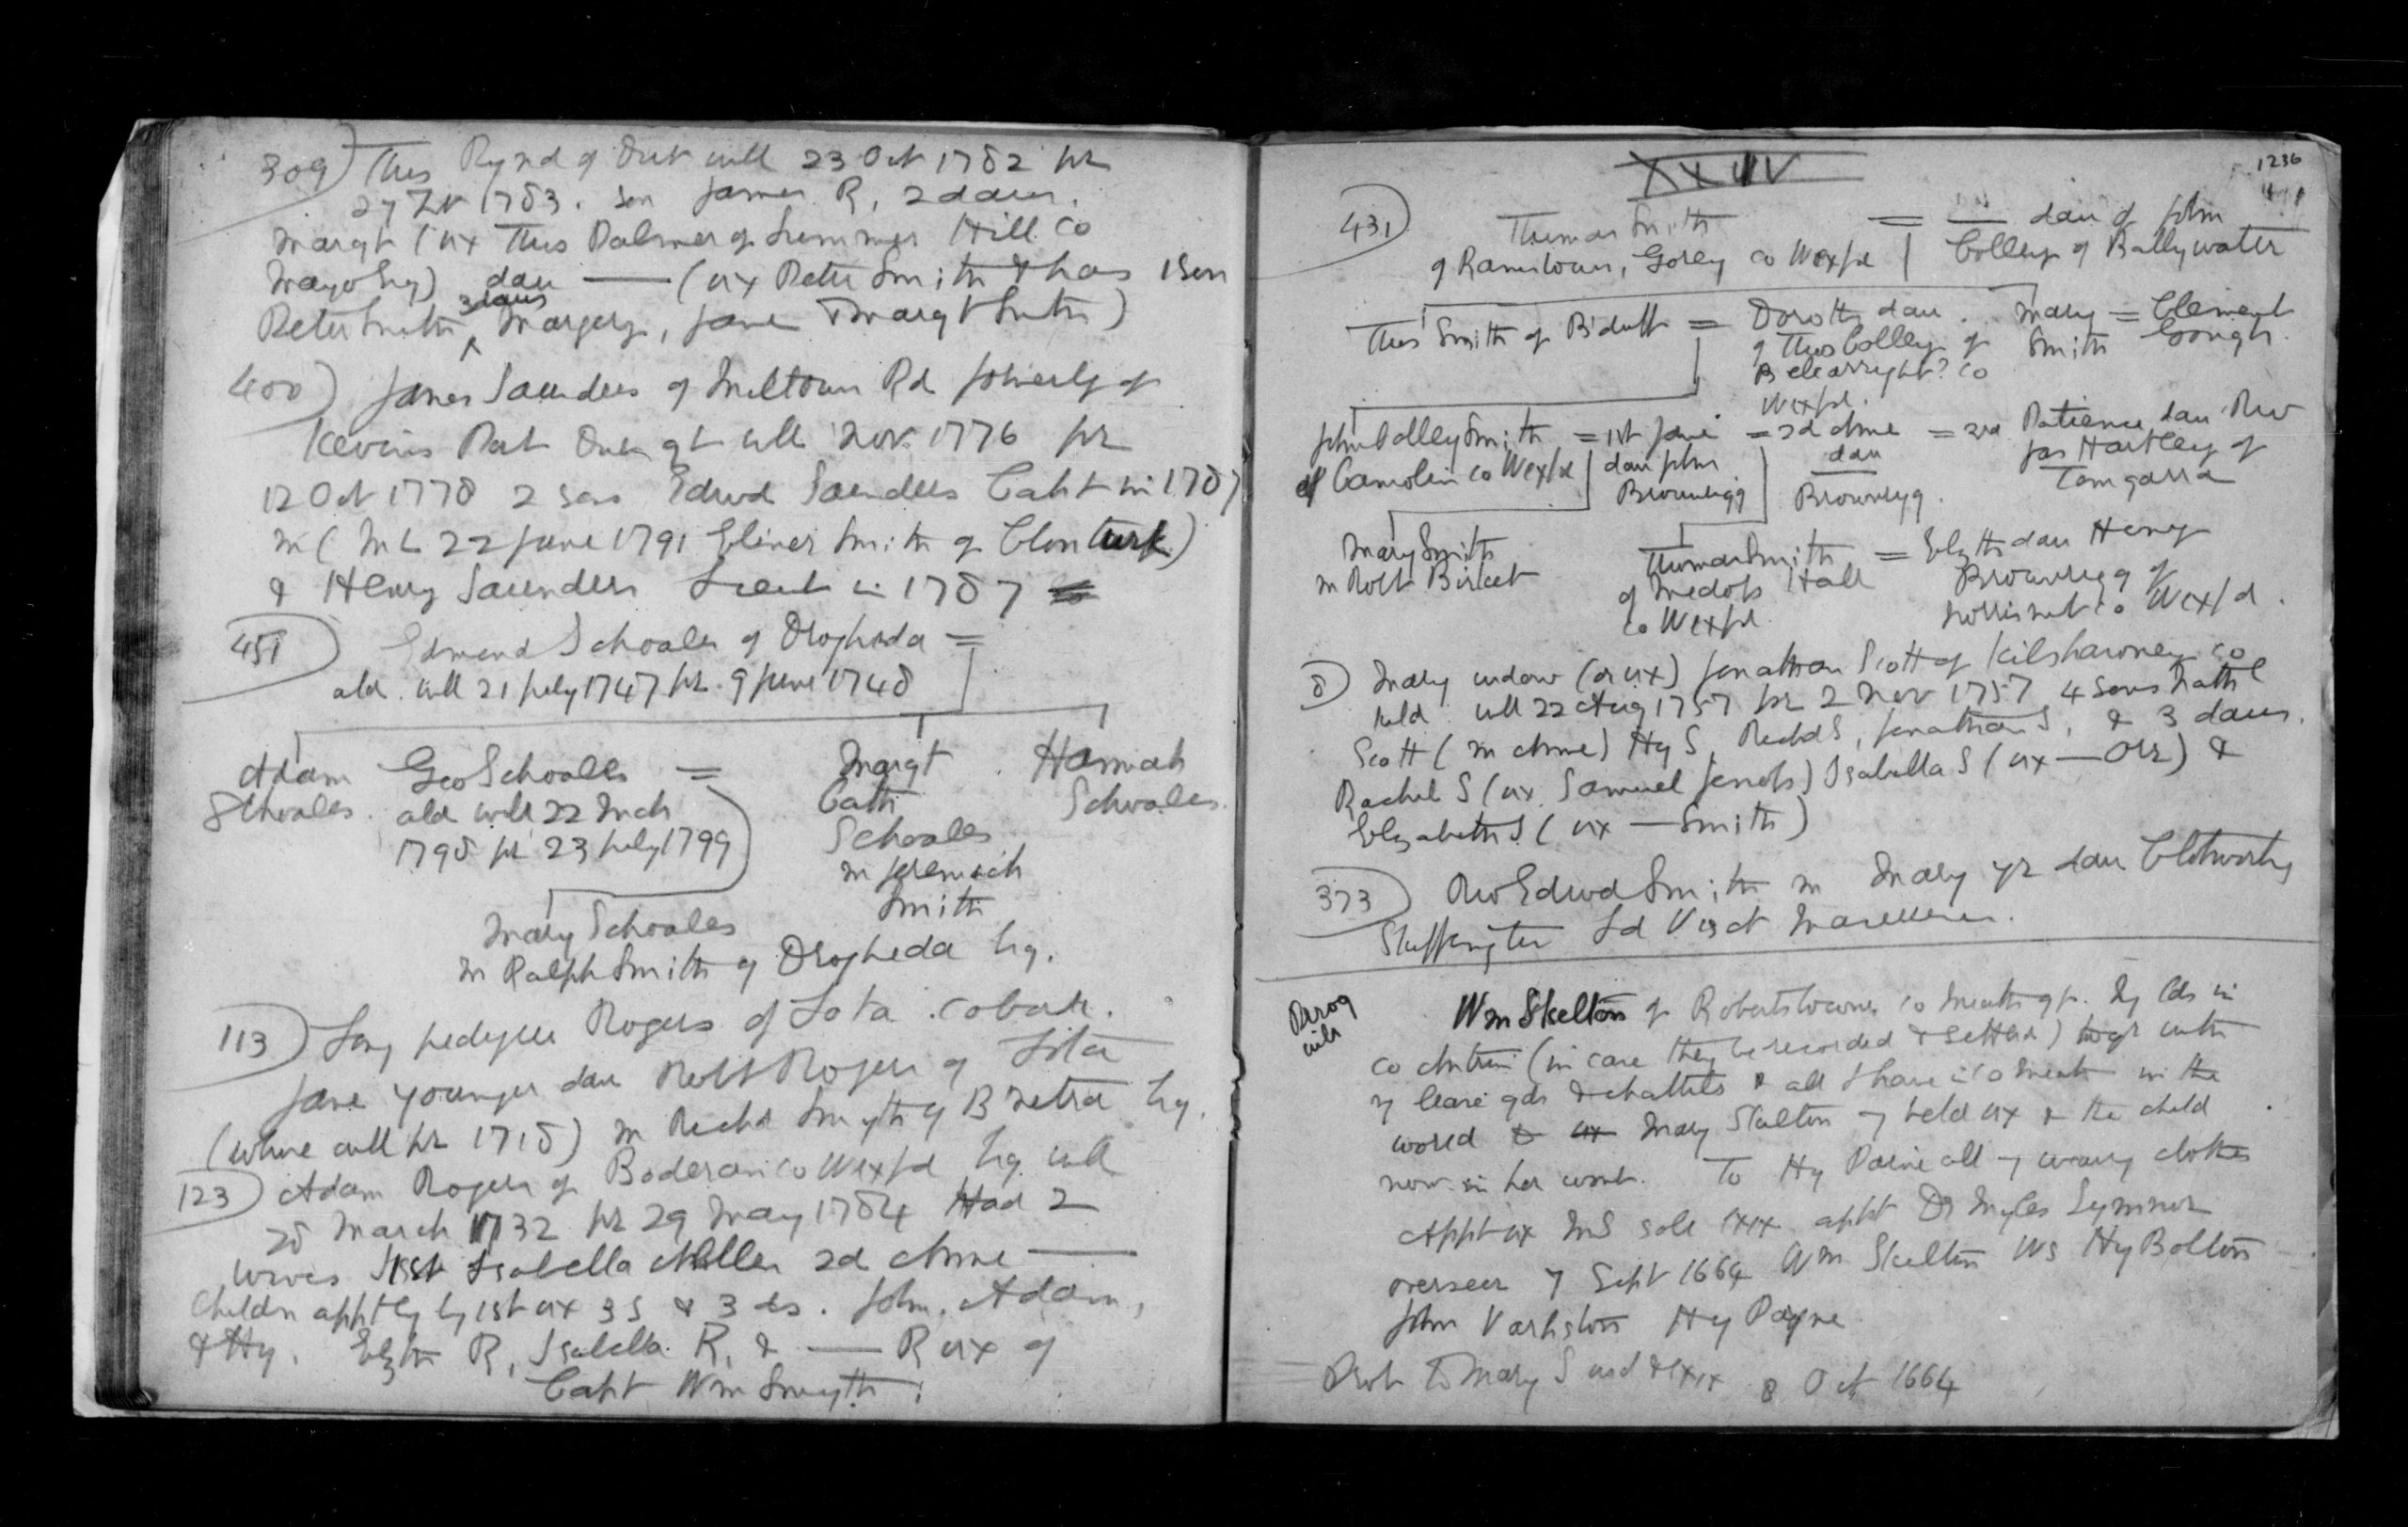 309) Thos Rynd of Dub will 23 Oct 1782 pr
27 1783. son James R, 2 daus.
Margt (ux Thos Palmer of Summer Hill Co
Mayo Esq) dau — (ux Peter Smith & has 1 son
Peter Smith, 3 daus Margery, Jane & Margt Smith)
400) James Saunders of Miltown Rd formerly of
Kevins Port Dub gt will Nov 1776 pr
12 Oct 1778 2 sons Edwd Saunders Capt in 1787
m (ML 22 June 1791 Elinor Smith of Clonturk)
& Henry Saunders Lieut in 1787
451) Edmund Schoales of Drogheda =
ald. will 21 July 1747 pr. 9 June 1748
Adam Geo Schoales = Margt Hannah
Schoales. ald will 22 Mch Cath Schoales.
1798 pr 23 July 1799 Schoales
m Jeremiah
Smith
Mary Schoales
m Ralph Smith of Drogheda Esq.
113) Long pedigree Rogers of Lota. co
Jane younger dau Robt Rogers of Lota
(whose will pr 1718) m Richd Smyth of B Esq.
123) Adam Rogers of co Wexfd Esq will
28 March 1732 pr 29 May 1784 Had 2
wives 1st Isabella 2d Anne —
Childn apptly by 1st ux 3 s & 3 ds. John, Adam,
& Hy. Elzth R, Isabella R, & — R ux of
Capt Wm Smyth.
1236
XXIIV
431) Thomas Smith = — dau of John
of Ramstown, Gorey co Wexfd Colley of Ballywater
Thos Smith of B'duff = Dorothy dau. Mary = Clement
of Thos Colley of Smith Gough.
B ? co
Wexfd.
John Colley Smith = 1st Jane = 2d Anne = 3rd Patience dau Rev
of Camolin co Wexfd dau John dau Jas Hartley of
Brownrigg Brownrigg. Tomgarra
Mary Smith Thomas Smith = Elzth dau Henry
m Robt Birket of Medop Hall Brownrigg of
co Wexfd. Norrismt co Wexfd.
8) Mary widow (or ux) Jonathan Scott of co
will 22 Aug 1757 pr 2 Nov 1757 4 sons Nathl
Scott (m Anne) Hy S, Richd S, Jonathan S, & 3 daus.
Rachel S (ux Samuel ) Isabella S (ux — Orr) &
Elizabeth S (ux — Smith)
373) Rev Edwd Smith m Mary yr dau Clotworthy
Skeffington Ld Visct Massereene.
Prerog
will
Wm Skelton of Robertstowne co Meath gt. My lds in
co Antrim (in case they be recorded & settled) togr with
my lease gds & chattels & all I have in the
world Mary Skelton my beld ux & the child
now in her womb. To Hy Paine all my wearing clothes
Appt ux MS sole exix appt Dr Myles Symner
overseer 7 Sept 1664 Wm Skelton Ws Hy Bolton
John Hy Payne
Prob to Mary S wid & exix 8 Oct 1664